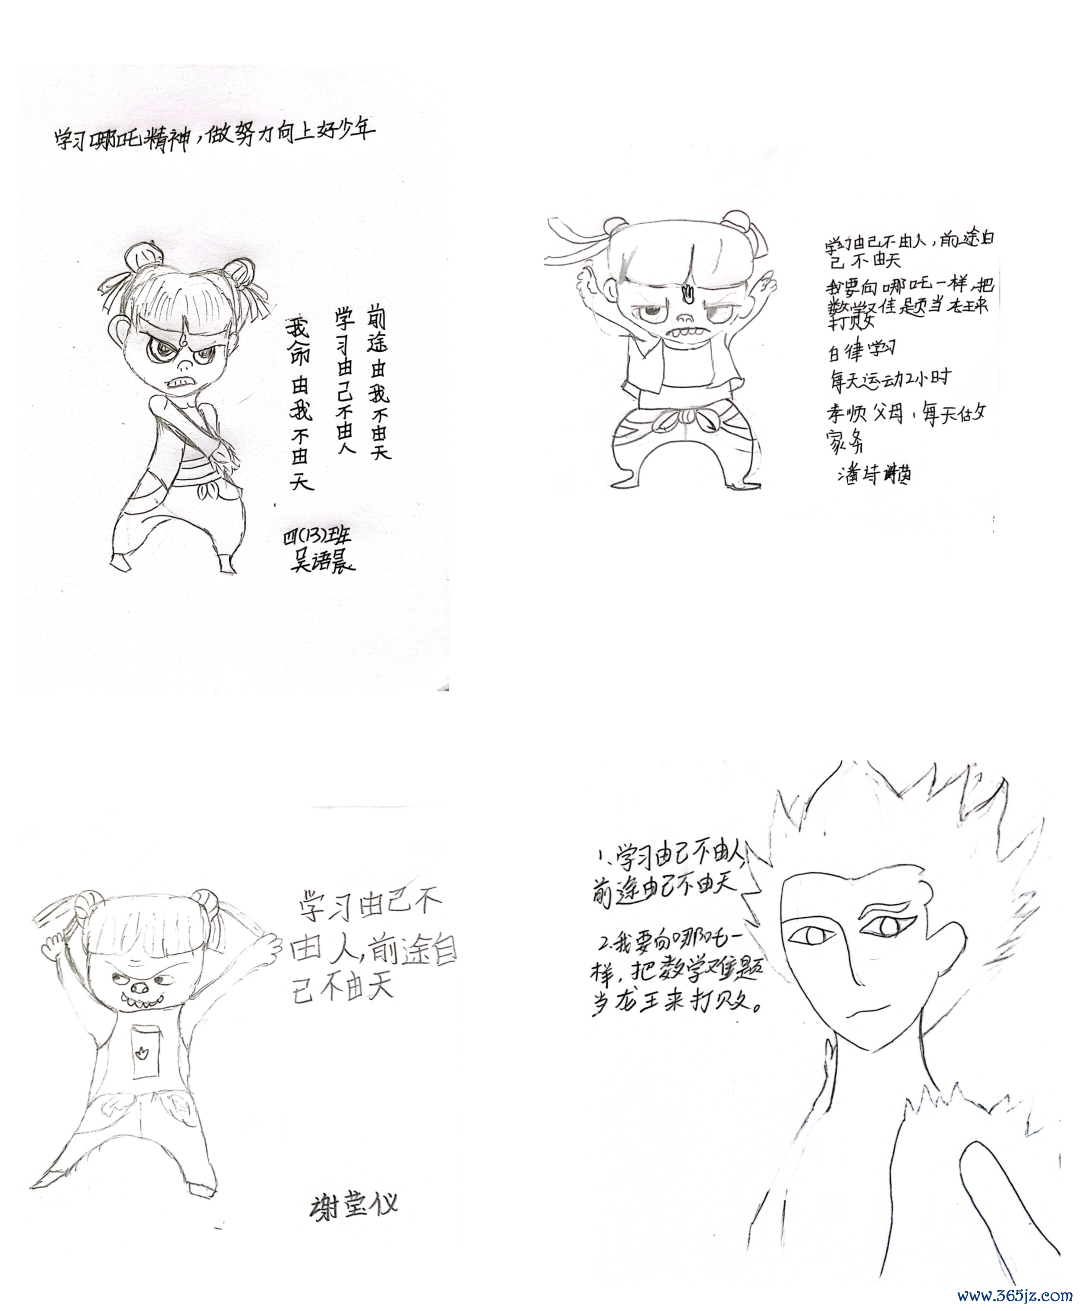 学习哪吒精神，做努力向上好少年
前途由我不由天
学习由己不由人
我命由我不由天
四(13)班
吴语晨
学习由己不由人，前途自
己不由天
我要向哪吒一样，把
数学难题当龙王来
打败
自律学习
每天运动2小时
孝顺父母，每天做
家务
潘诗
学习由己不
由人，前途自
己不由天
谢莹仪
1、学习由己不由人，
前途由己不由天
2.我要向哪吒一
样，把数学难题
当龙王来打败。
www.365jz.com